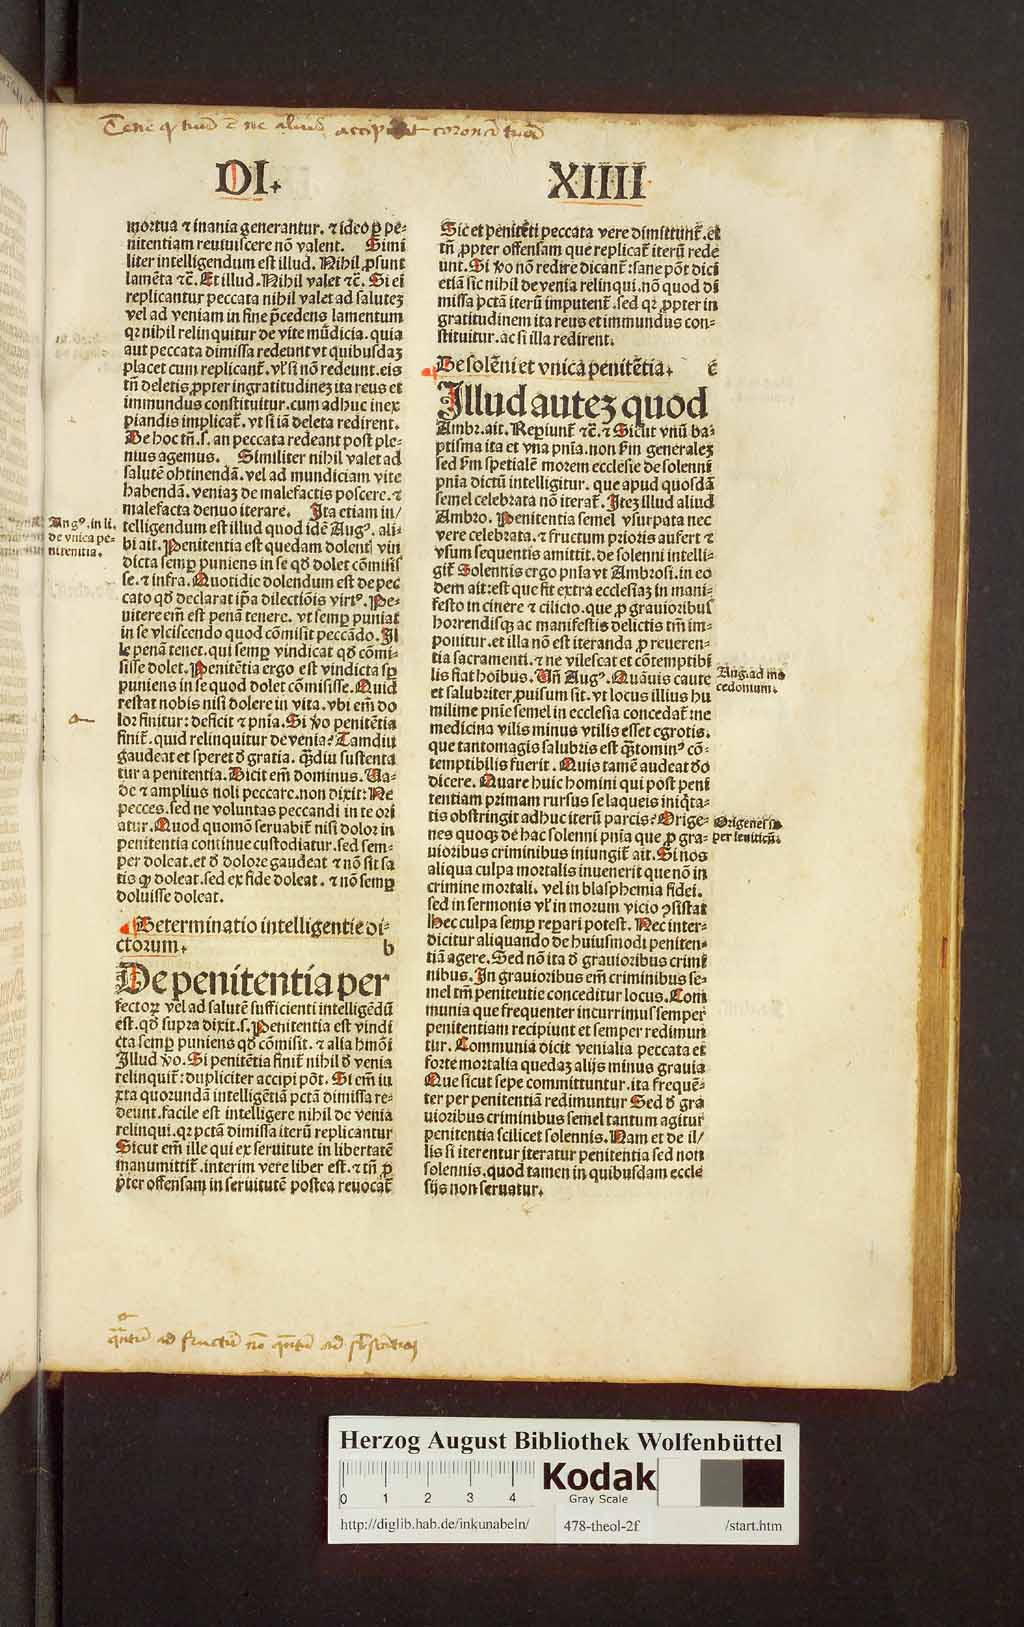 Tene qd tuū ē ne alius accipiat coronā tuā
DI.
XIIII
mortua ⁊ inania generantur. ⁊ ideo ꝑ pe-
nitentiam reuiuiscere nō valent. Simi
liter intelligendum est illud. Nihil ꝓsunt
lamēta ⁊c̄. Et illud. Nihil valet ⁊c̄. Si ei
replicantur peccata nihil valet ad saluteꝫ
vel ad veniam in fine p̄cedens lamentum
qꝛ nihil relinquitur de vite mūdicia. quia
aut peccata dimissa redeunt vt quibusdaꝫ
placet cum replicant̄. vl̓ si nō redeunt. eis
tn̄ deletis ꝓpter ingratitudineꝫ ita reus et
immundus constituitur. cum adhuc inex
piandis implicat̄. vt si iā deleta redirent.
De hoc tn̄. s̓. an peccata redeant post ple-
nius agemus. Similiter nihil valet ad
salutē obtinendā. vel ad mundiciam vite
habendā. veniaꝫ de malefactis poscere. ⁊
malefacta denuo iterare. Ita etiam in/
telligendum est illud quod idē Augꝰ. ali-
bi ait. Penitentia est quedam dolentꝭ vin
dicta semꝑ puniens in se qd̓ dolet cōmisis
se. ⁊ infra. Quotidie dolendum est de pec
cato qd̓ declarat ip̄a dilectiōis virtꝰ. Pe-
nitere em̄ est penā tenere. vt semꝑ puniat
in se vlciscendo quod cōmisit peccādo. Il
le penā tenet. qui semꝑ vindicat qd̓ cōmi-
sisse dolet. Penitētia ergo est vindicta sꝑ
puniens in se quod dolet cōmisisse. Quid
restat nobis nisi dolere in vita. vbi em̄ do
lor finitur: deficit ⁊ pn̄ia. Si v̓o penitētia
finit̄. quid relinquitur de venia? Tamdiu
gaudeat et speret d̓ gratia. q̄diu sustenta
tur a penitentia. Dicit em̄ dominus. Va-
de ⁊ amplius noli peccare. non dixit: Ne
pecces. sed ne voluntas peccandi in te ori
atur. Quod quomō seruabit̄ nisi dolor in
penitentia continue custodiatur. sed sem-
per doleat. et d̓ dolore gaudeat ⁊ nō sit sa
tis ꝙ doleat. sed ex fide doleat. ⁊ nō semꝑ
doluisse doleat.
Determinatio intelligentie di-
ctorum. b
De penitentia per
fectorꝝ vel ad salutē sufficienti intelligēdū
est. qd̓ supra dixit. s̓. Penitentia est vindi
cta semꝑ puniens qd̓ cōmisit. ⁊ alia hmōi
Illud v̓o. Si penitētia finit̄ nihil d̓ venia
relinquit̄: dupliciter accipi pōt. Si em̄ iu
xta quorundā intelligētiā pctā dimissa re-
deunt. facile est intelligere nihil de venia
relinqui. qꝛ pctā dimissa iterū replicantur
Sicut em̄ ille qui ex seruitute in libertatē
manumittit̄. interim vere liber est. ⁊ tn̄ ꝓ
pter offensam in seruitutē postea reuocat̄
Sic et penitēti peccata vere dimittunt̄. et
tn̄ ꝓpter offensam que replicat̄ iterū rede
unt. Si v̓o nō redire dicant̄: sane pōt dici
etiā sic nihil de venia relinqui. nō quod di
missa pctā iterū imputent̄. sed qꝛ ꝓpter in
gratitudinem ita reus et immundus con-
stituitur. ac si illa redirent.
De solēni et vnica penitētia. c
Illud auteꝫ quod
Ambr̄. ait. Reꝑiunt̄ ⁊c̄. ⁊ Sicut vnū ba-
ptisma ita et vna pn̄ia. non ẜm generaleꝫ
sed ẜm spetialē morem ecclesie de solenni
pn̄ia dictū intelligitur. que apud quosdā
semel celebrata nō iterat̄. Iteꝫ illud aliud
Ambro. Penitentia semel vsurpata nec
vere celebrata. ⁊ fructum prioris aufert ⁊
vsum sequentis amittit. de solenni intelli-
git̄ Solennis ergo pn̄ia vt Ambrosi. in eo
dem ait: est que fit extra ecclesiaꝫ in mani-
festo in cinere ⁊ cilicio. que ꝓ grauioribus
horrendisqꝫ ac manifestis delictis tm̄ im-
ponitur. et illa nō est iteranda ꝓ reueren-
tia sacramenti. ⁊ ne vilescat et cōtemptibi
lis fiat hoībus. Vn̄ Augꝰ. Quāuis caute
et salubriter ꝓuisum sit. vt locus illius hu
milime pn̄ie semel in ecclesia concedat̄ :ne
medicina vilis minus vtilis esset egrotis.
que tantomagis salubris est q̄tominꝰ cō-
temptibilis fuerit. Quis tamē audeat d̓o
dicere. Quare huic homini qui post peni
tentiam primam rursus se laqueis iniq̄ta-
tis obstringit adhuc iterū parcis? Orige-
nes quoqꝫ de hac solenni pn̄ia que ꝓ gra-
uioribus criminibus iniungit̄ ait. Si nos
aliqua culpa mortalis inuenerit que nō in
crimine mortali. vel in blasphemia fidei.
sed in sermonis vl̓ in morum vicio ꝯsistat
Hec culpa semꝑ repari potest. Nec inter-
dicitur aliquando de huiusmodi peniten-
tiā agere. Sed nō ita d̓ grauioribus crimi
nibus. In grauioribus em̄ criminibus se-
mel tm̄ penitentie conceditur locus. Com
munia que frequenter incurrimus semper
penitentiam recipiunt et semper redimun
tur. Communia dicit venialia peccata et
forte mortalia quedaꝫ alijs minus grauia
Que sicut sepe committuntur. ita frequē-
ter per penitentiā redimuntur Sed d̓ gra
uioribus criminibus semel tantum agitur
penitentia scilicet solennis. Nam et de il/
lis si iterentur iteratur penitentia sed non
solennis. quod tamen in quibusdam eccle
sijs non seruatur.
Augꝰ. in li.
de vnica pe-
nitentia.
Aug. ad ma
cedonium.
Origenes su
per leuiticū.
quātū ad fructū nō quātū ad
Herzog August Bibliothek Wolfenbüttel
0 1 2 3 4
Kodak
Gray Scale
http://diglib.hab.de/inkunabeln/ 478-theol-2f /start.htm